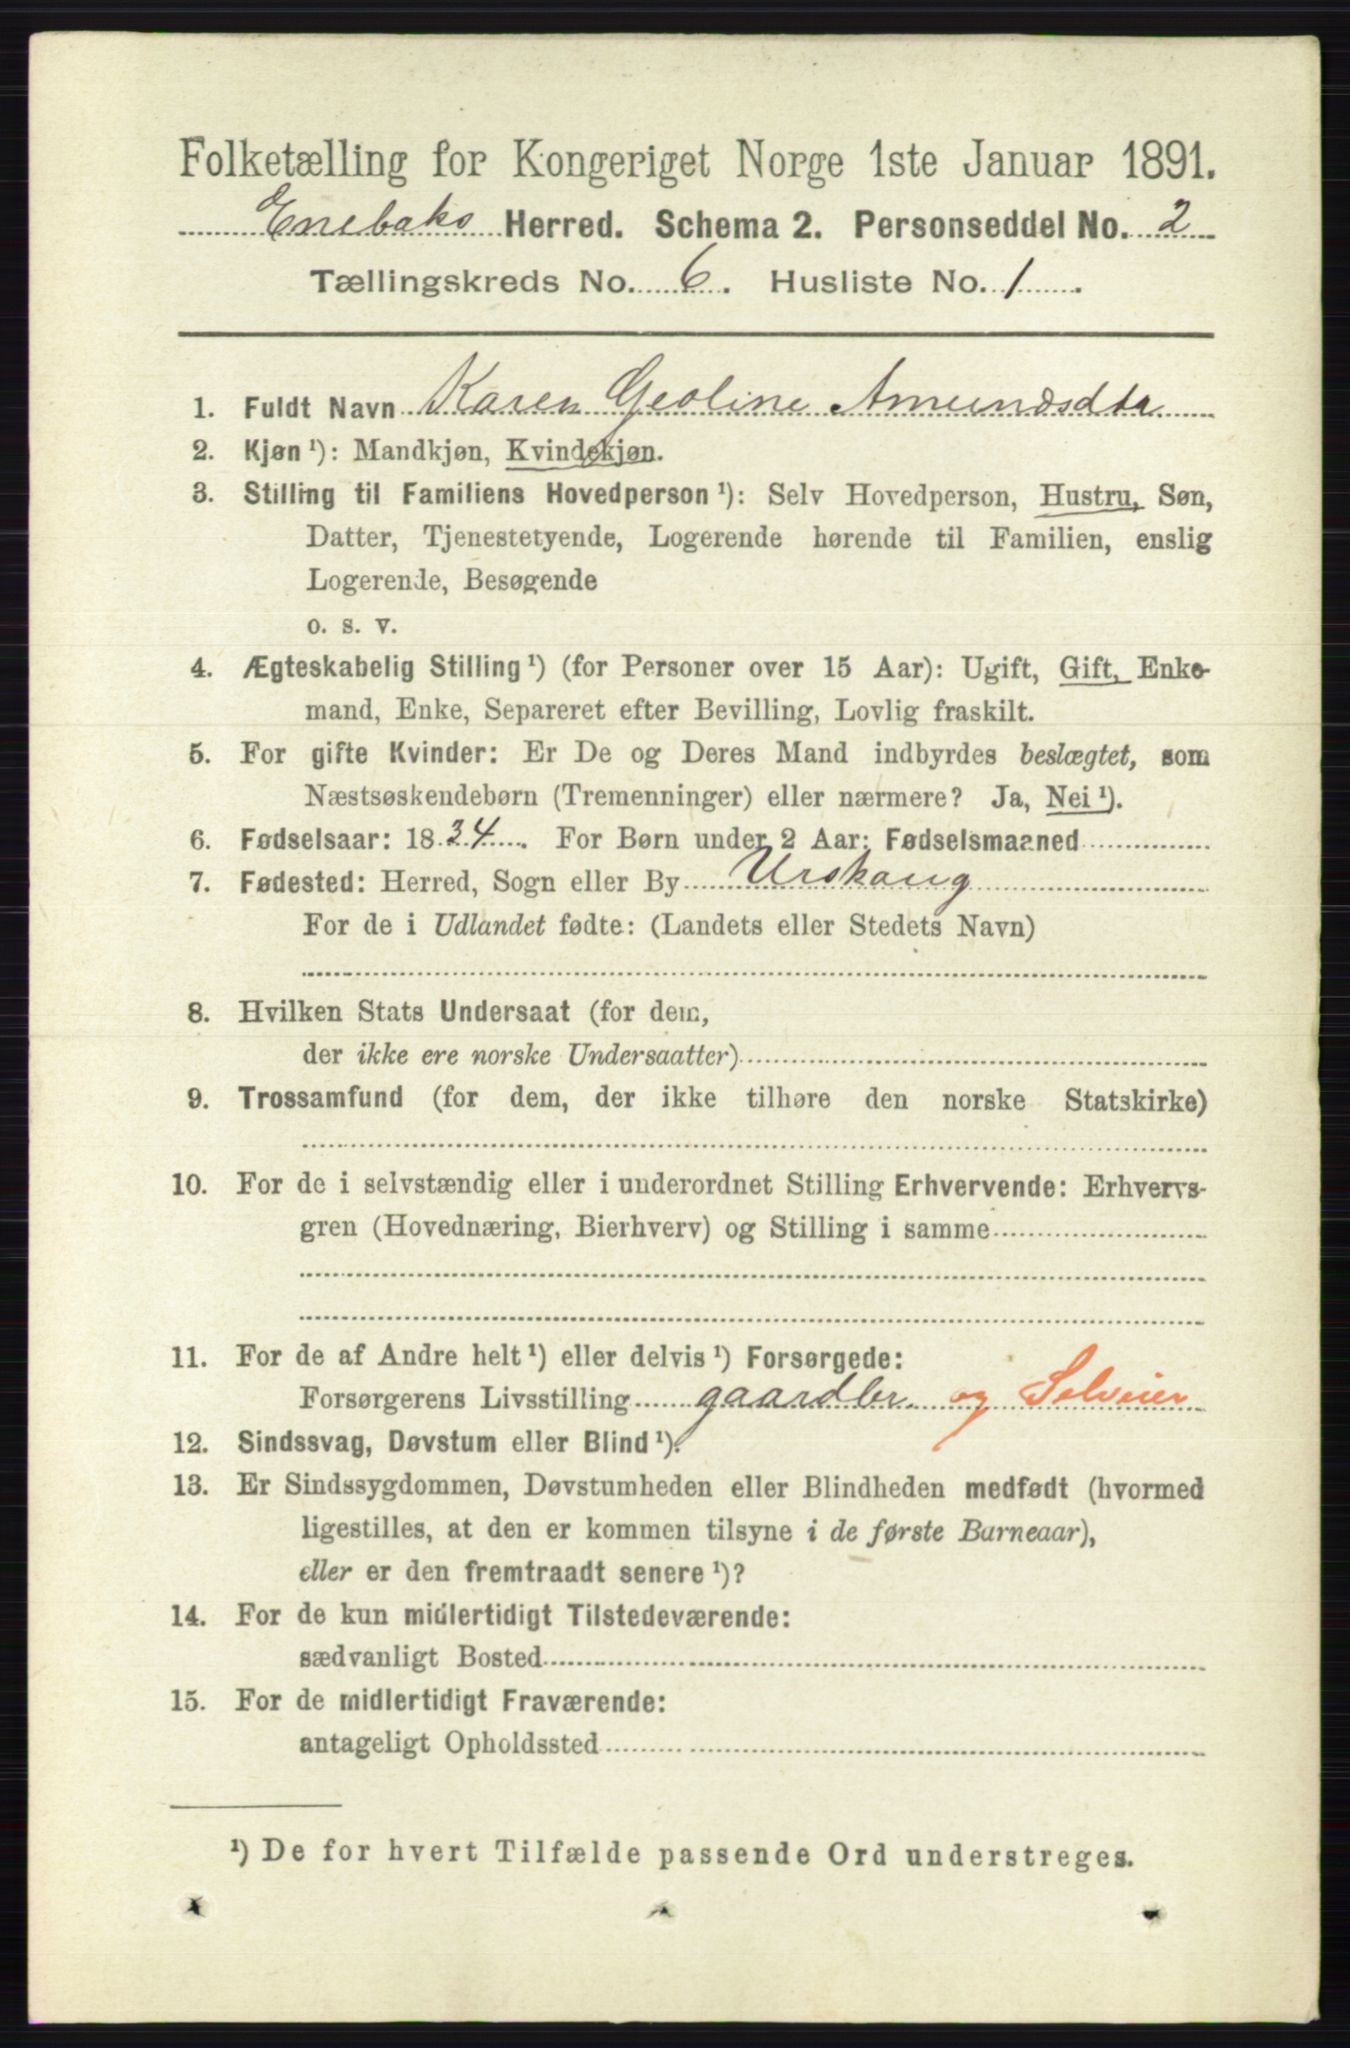 Folketælling for Kongeriget Norge 1ste Januar 1891.
Enebaks Herred. Schema 2. Personseddel No. 2
Tællingskreds No. 6. Husliste No. 1.
1. Fuldt Navn Karen Geoline Amundsdtr
2. Kjøn ¹): Mandkjøn, Kvindekjøn.
3. Stilling til Familiens Hovedperson ¹): Selv Hovedperson, Hustru, Søn,
Datter, Tjenestetyende, Logerende hørende til Familien, enslig
Logerende, Besøgende
o. s. v.
4. Ægteskabelig Stilling ¹) (for Personer over 15 Aar): Ugift, Gift, Enke-
mand, Enke, Separeret efter Bevilling, Lovlig fraskilt.
5. For gifte Kvinder: Er De og Deres Mand indbyrdes beslægtet, som
Næstsøskendebørn (Tremenninger) eller nærmere? Ja, Nei ¹).
6. Fødselsaar: 1834. For Børn under 2 Aar: Fødselsmaaned
7. Fødested: Herred, Sogn eller By Urskoug
For de i Udlandet fødte: (Landets eller Stedets Navn)
8. Hvilken Stats Undersaat (for dem,
der ikke ere norske Undersaatter)
9. Trossamfund (for dem, der ikke tilhøre den norske Statskirke)
10. For de i selvstændig eller i underordnet Stilling Erhvervende: Erhvervs-
gren (Hovednæring, Bierhverv) og Stilling i samme
11. For de af Andre helt ¹) eller delvis ¹) Forsørgede:
Forsørgerens Livsstilling gaardbr. og Selveier
12. Sindssvag, Døvstum eller Blind ¹).
13. Er Sindssygdommen, Døvstumheden eller Blindheden medfødt (hvormed
ligestilles, at den er kommen tilsyne i de første Barneaar),
eller er den fremtraadt senere ¹)?
14. For de kun midlertidigt Tilstedeværende:
sædvanligt Bosted
15. For de midlertidigt Fraværende:
antageligt Opholdssted
¹) De for hvert Tilfælde passende Ord understreges.